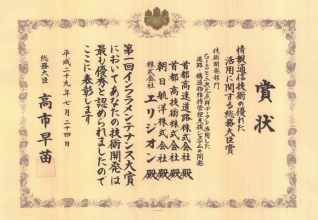 賞状
情報通信技術の優れた
活用に関する総務大臣賞
技術開発部門
道路・構造物維持管理支援システムの開発
首都高速道路株式会社殿
首都高技術株式会社殿
朝日航洋株式会社殿
株式会社エリジオン殿
第一回インフラメンテナンス大賞
においてあなたの技術開発は
最も優秀と認められましたので
ここに表彰します
平成二十九年七月二十四日
総務大臣 高市早苗